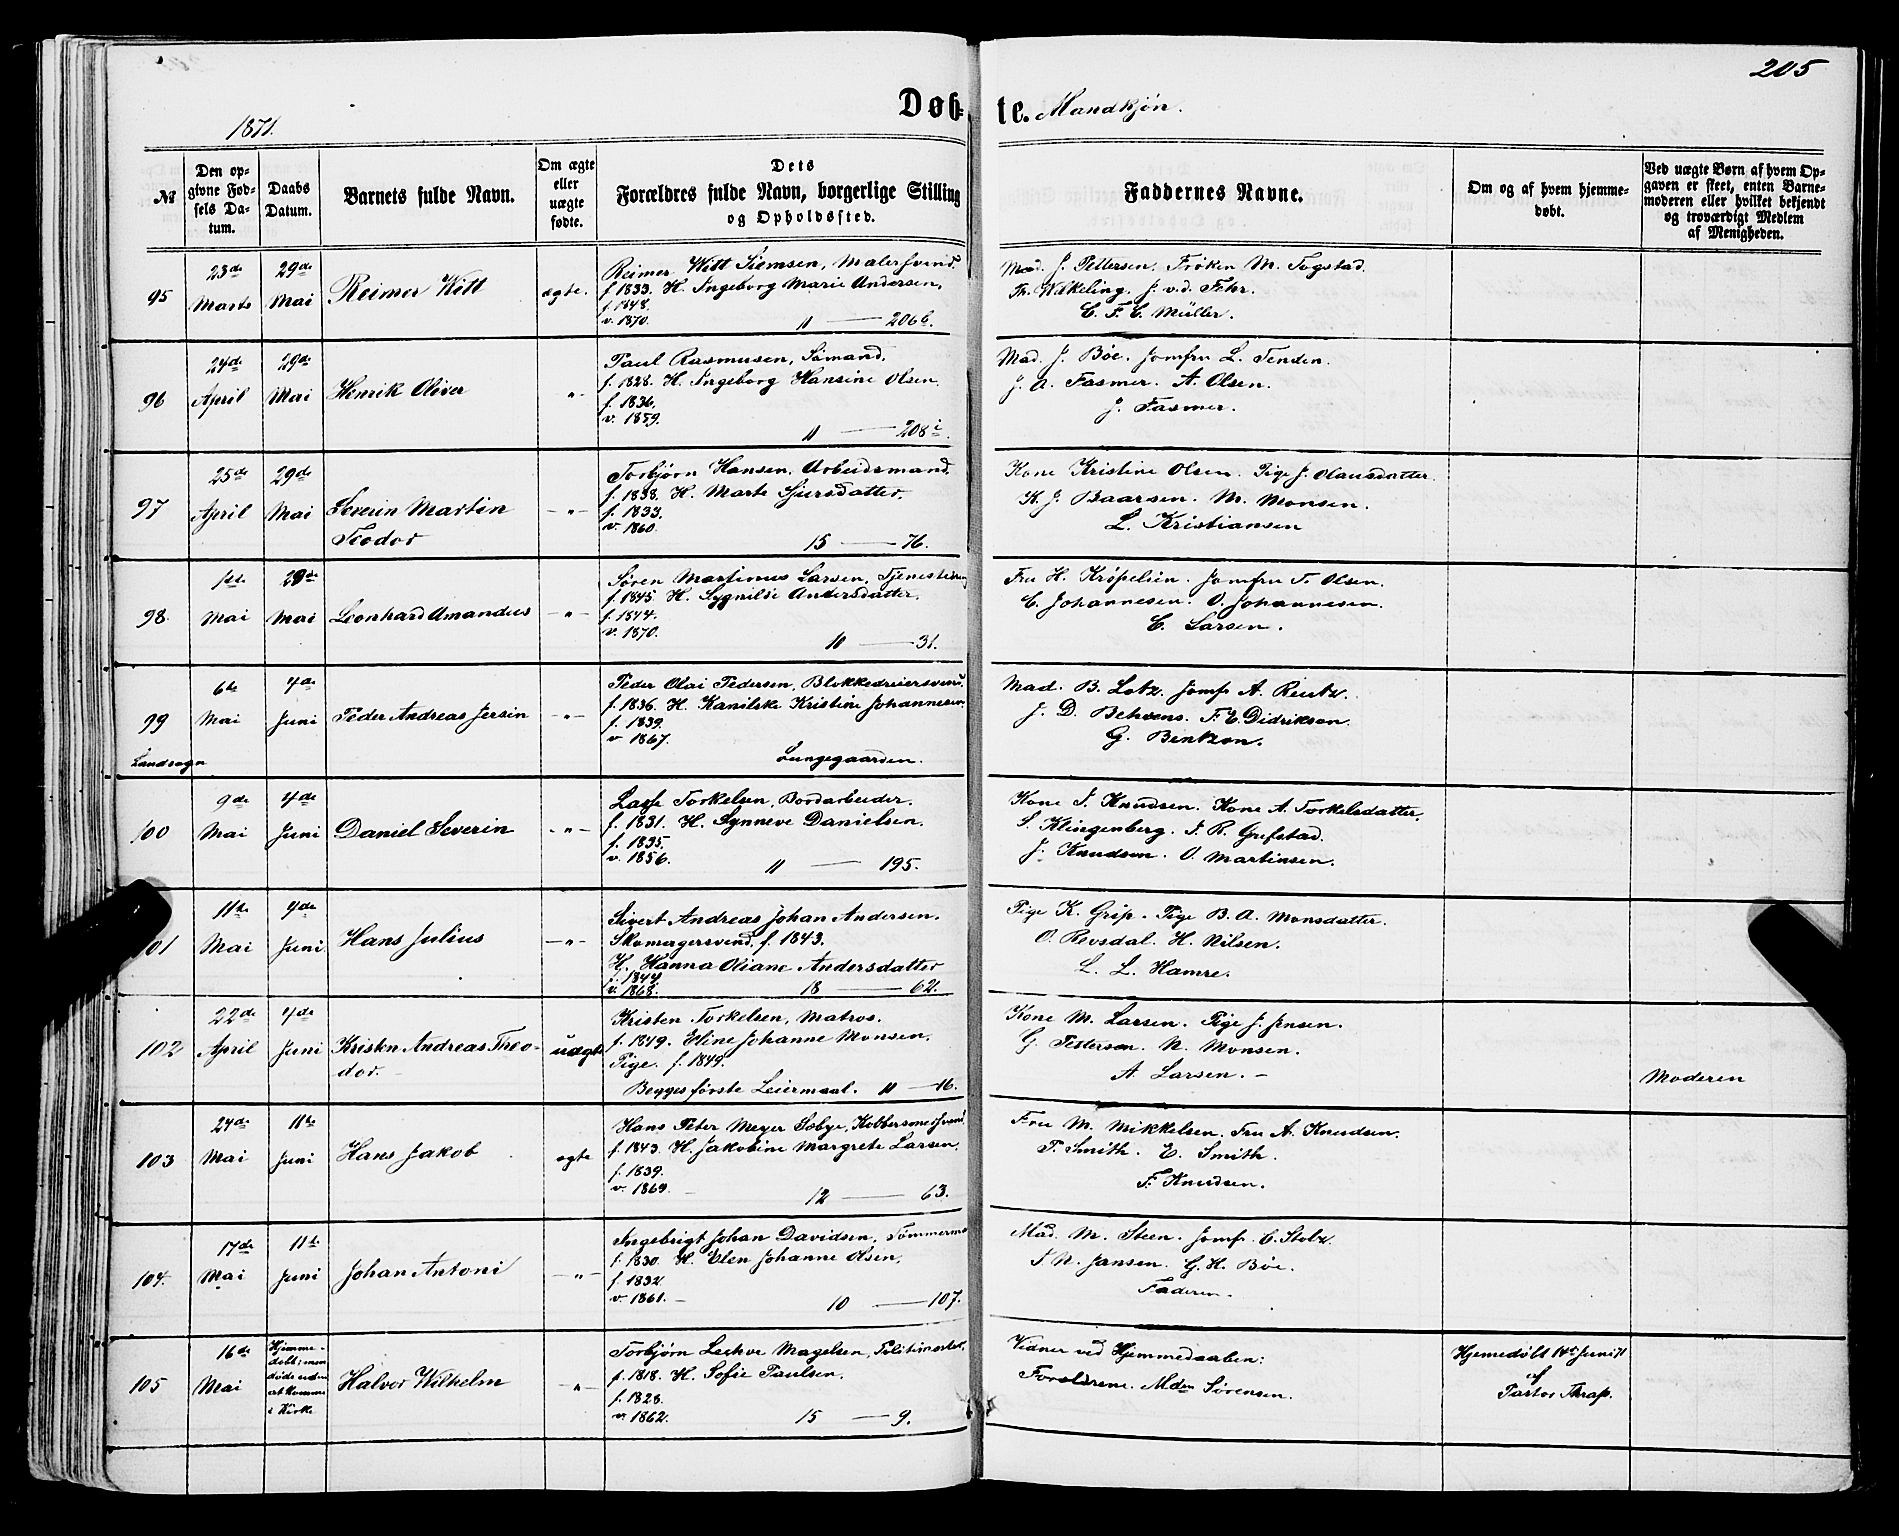 205
Døb-te. Mandkjön.
1871.
№
Den op-
givne Fød-
sels Da-
tum.
Daabs
Datum.
Barnets fulde Navn.
Om ægte
eller
uægte
fødte.
Dets
Forældres fulde Navn, borgerlige Stilling
og Opholdssted.
Faddernes Navne.
Om og af hvem hjemme-
døbt.
Ved uægte Børn af hvem Op-
gaven er skeet, enten Barne-
moderen eller hvilket bekjendt
og troværdigt Medlem
af Menigheden.
95
23de
Marts
29de
Mai
Reimer Witt
ægte.
Reimer Witt Siemsen, Malersvend.
f. 1833. H. Ingeborg Marie Andersen,
f. 1848.
v. 1870.
11 — 206b.
Mad. J. Pettersen. Frøken M. Fogstad.
Th. Wakeling. J. v. d. Fehr.
C. F. C. Müller.
96
24de
April
29de
Mai
Henrik Oliver
-"-
Paul Rasmusen, Sömand.
f. 1828. H. Ingeborg Hansine Olsen.
f. 1836.
v. 1859.
11 — 208i.
Mad. J. Böe. Jomfru L. Tenden.
J. A. Fasmer. A. Olsen.
J. Fasmer.
97
25de
April
29de
Mai
Severin Martin
Teodor
-"-
Torbjørn Hansen, Arbeidsmand.
f. 1838. H. Marte Sjursdatter.
f. 1833.
v. 1860.
15 — 76.
Kone Kristine Olsen. Pige J. Olausdatter.
K. J. Baarsen. M. Monsen.
L. Kristiansen
98.
1ste
Mai
29de
Mai
Leonhard Amandus
-"-
Søren Martinus Larsen,
f. 1845. H. Sygnilde Andersdatter.
f. 1844.
v. 1870.
10 — 31.
Fru H. Krøpelien. Jomfru T. Olsen.
C. Johannesen. O. Johannesen.
C. Larsen.
99
Landsogn
6te
Mai
4de
Juni
Peder Andreas Jersin
-"-
Peder Olai Pedersen, Blokkedreiersvend.
f. 1836. H. Kanilske Kristine Johannesen.
f. 1839.
v. 1867.
Lungegaarden.
Mad. B. Lotz. Jomfr. A. Rentz.
J. D. Behrens. F. E. Didrikson.
G. Bentzon.
100
9de
Mai
4de
Juni
Daniel Severin
-"-
Lasse Torkelsen, Bordarbeider.
f. 1831. H. Synneve Danielsen.
f. 1835.
v. 1856.
11 — 195.
Kone S. Knudsen. Kone A. Torkelsdatter.
S. Klingenberg. J. R. Grefstad.
J. Knudsen. O. Martinsen.
101
11te
Mai
4de
Juni
Hans Julius
-"-
Sivert Andreas Johan Andersen.
Skomagersvend. f. 1843.
H. Hanna Oliane Andersdatter
f. 1844.
v. 1868.
18 — 62.
Pige K. Grip. Pige B. A. Monsdatter.
O. Revsdal. H. Nilsen.
L. L. Hamre.
102
22de
April
4de
Juni
Kristen Andreas Theo-
dor.
uægte
Kristen Torkelsen, Matros.
f. 1849. Eline Johanne Monsen.
Pige. f. 1849.
Begges første Leiermaal. 11 — 16.
Kone M. Larsen. Pige J. Jensen.
G. Pettersen. N. Monsen.
A. Larsen.
Moderen
103
24de
Mai
11te
Juni
Hans Jakob
ægte
Hans Peter Meyer Sobye, Kobbersmedsvend.
f. 1843. H. Jakobine Margrete Larsen.
f. 1839.
v. 1869.
12 — 63.
Fru M. Mikkelsen. Fru A. Knudsen.
P. Smith. E. Smith.
F. Knudsen.
104.
17de
Mai
11te
Juni
Johan Antoni
-"-
Ingebrigt Johan Davidsen, Tømmermd
f. 1830. H. Elen Johanne Olsen.
f. 1832.
v. 1861.
10 — 107.
Mad. M. Steen. Jomf. C. Stolz.
J. N. Jansen. G. H. Böe.
Faderen.
105
16de
Mai
Hjemme-
döbt; men
døde uden
at komme
i Kirke
Halvor Wilhelm
-"-
Torbjørn Lechve Magelsen,
f. 1818. H. Sofie Paulsen.
f. 1828.
v. 1862.
15 — 9.
Vidner ved Hjemmedaaben:
Forældrene. Mdm Sørensen.
Hjemedöbt Juni 71
af
Pastor Thrap.